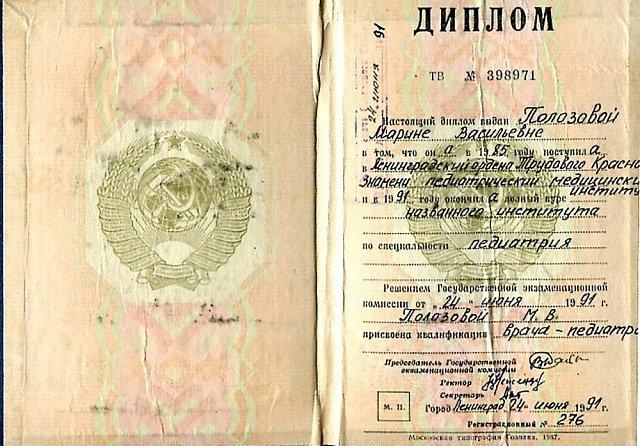 ДИПЛОМ
ТВ № 398971
Настоящий диплом выдан Полазовой
Марине Васильевне
в том, что он а в 1985 году поступил а
в Ленинградский ордена Трудового Красно
Знамени педиатрический медицински
институт
и в 1991 году окончил а полный курс
названного института
по специальности педиатрия
Решением Государственной экзаменационной
комиссии от „24" июня 1991 г.
Полазовой М. В.
присвоена квалификация врача-педиатра
Председатель Государственной
экзаменационной комиссии
Ректор
Секретарь
М. П.
Город Ленинград 24 июня 1991
Регистрационный № 276
Московская типография Гознака, 1987.